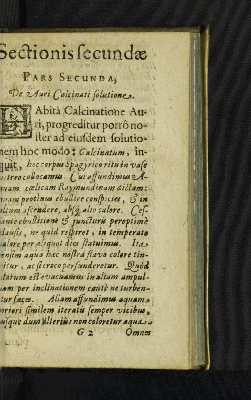 Sectionis secundæ
PARS SECUNDA,
De Auri Calcinati solutione.
HAbità Calcinatione Au-
ri, progreditur porrò no-
ster ad eiusdem solutio-
nem hoc modo: Calcinatum, in-
quit, hoc corpus Spagyrico ritu in vase
vitreo collocamus. Cui affundimus A-
quam cælicam Raymundinam dictam:
quam protinus ebullire conspicies, & in
altum ascendere, absq; alto calore. Ces-
sante ebullitione & juncturis peroptimè
clausis, ne quid respiret, in temperato
calore per aliquot dies statuimus. Ita-
enim aqua hæc nostra flavo colore tin-
itur, ac si croco perfunderetur. Quod
latum est evacuamus in altum ampul-
am per inclinationem cautè ne turben-
tur fæces. Aliam affundimus aquam
ortori similem iteratis semper vicibus,
usque dum ulteriùs non coloretur aqua.
G 2 Omnes